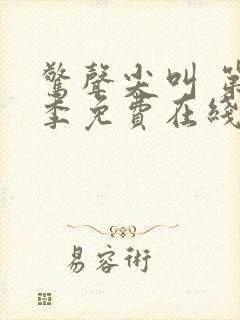 驚聲尖叫 第
季免費在綫
易容術